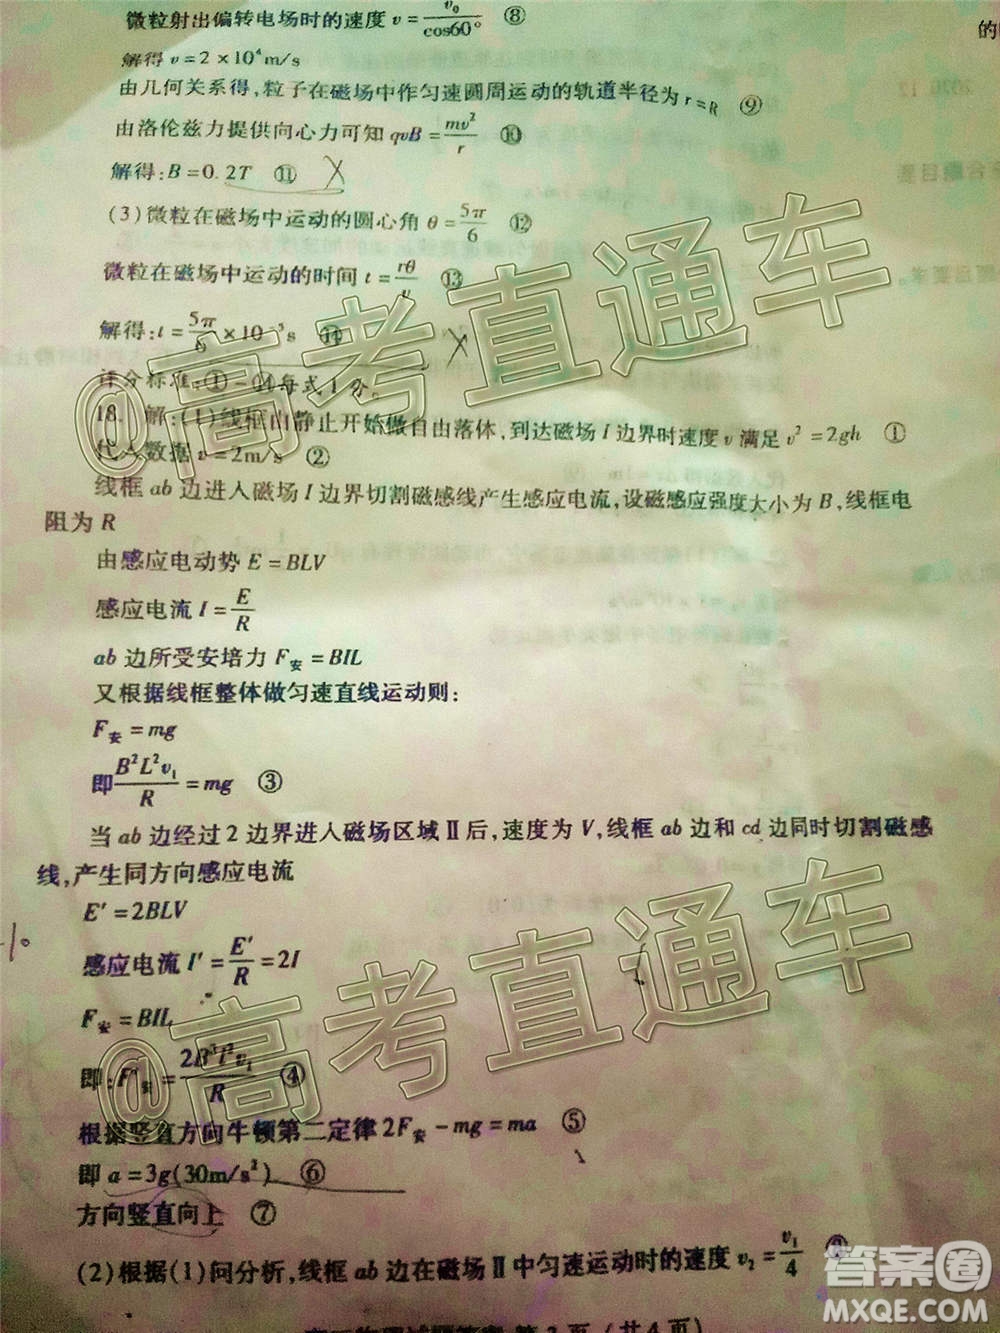 微粒射出偏转电场时的速度 v=v₀/cos60° ⑧
解得 v=2×10⁴m/s
由几何关系得,粒子在磁场中作匀速圆周运动的轨道半径为 r=R ⑨
由洛伦兹力提供向心力可知 qvB=mv²/r ⑩
解得:B=0.2T ⑪
(3)微粒在磁场中运动的圆心角 θ=5π/6 ⑫
微粒在磁场中运动的时间 t=rθ/v ⑬
解得:t=5π/ ×10⁻⁵s ⑭
评分标准:①-⑭每式1分。
18. 解:(1)线框由静止开始做自由落体,到达磁场 I 边界时速度 v 满足 v²=2gh ①
代人数据 v=2m/s ②
线框 ab 边进人磁场 I 边界切割磁感线产生感应电流,设磁感应强度大小为 B,线框电
阻为 R
由感应电动势 E=BLV
感应电流 I=E/R
ab 边所受安培力 F安=BIL
又根据线框整体做匀速直线运动则:
F安=mg
即B²L²v₁/R=mg ③
当 ab 边经过 2 边界进人磁场区域 Ⅱ 后,速度为 V,线框 ab 边和 cd 边同时切割磁感
线,产生同方向感应电流
E′=2BLV
感应电流 I′=E′/R=2I
F安=BIL
即:F′安=2B²L²v₁/R ④
根据竖直方向牛顿第二定律 2F安-mg=ma ⑤
即 a=3g(30m/s²) ⑥
方向竖直向上 ⑦
(2)根据(1)问分析,线框 ab 边在磁场 Ⅱ 中匀速运动时的速度 v₂=v₁/4
页(共4页)
@高考直通车
@高考直通车
答案圈
MXQE.COM